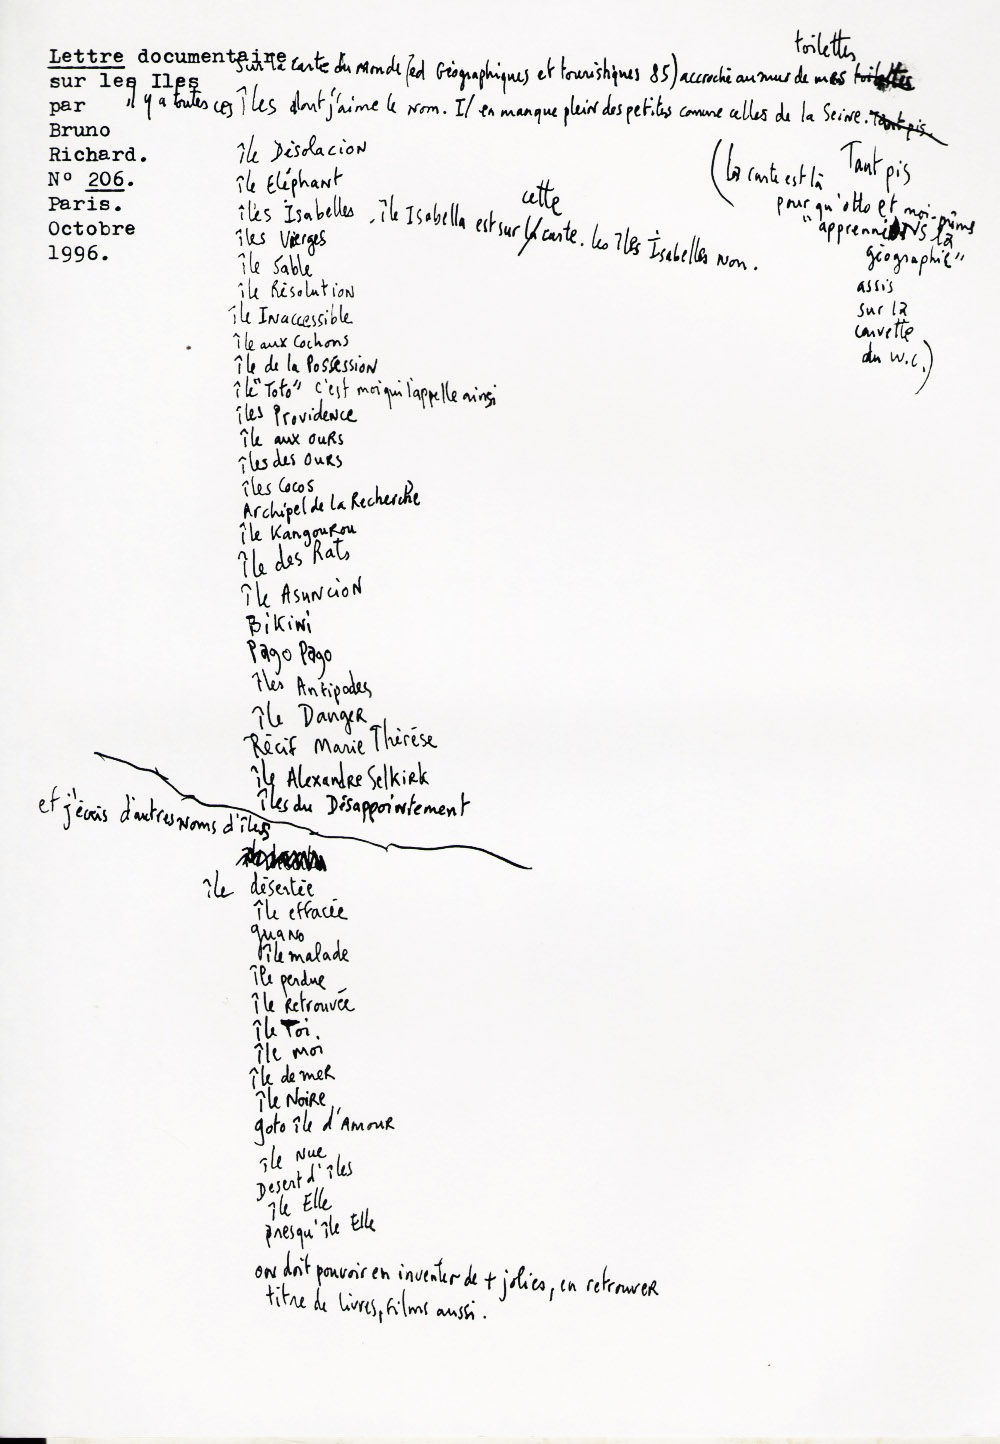 Lettre documentaire
sur les Iles
par
Bruno
Richard.
Nº 206.
Paris.
Octobre
1996.
toilettes
Sur la carte du Monde (ed Géographiques et touristiques 85) accroché au mur de mes toilettes
il y a toutes ces îles dont j'aime le nom. Il en manque plein des petites comme celles de la Seine. Tant pis.
Tant pis
(la carte est là
pour qu'otto et moi-même
"apprenniONS la
géographie"
assis
sur la
cuvette
du W.C.)
île Désolacion
île Eléphant
cette
îles Isabelles, île Isabella est sur la carte. les îles Isabelles non.
îles Vierges
île Sable
île Résolution
île Inaccessible
île aux Cochons
île de la Possession
île "Toto" c'est moi qui l'appelle ainsi
îles Providence
île aux ours
îles des ours
îles Cocos
Archipel de la Recherche
île Kangourou
île des Rats
île Asuncion
Bikini
Pago Pago
îles Antipodes
île Danger
Récif Marie Thérèse
île Alexandre Selkirk
îles du Désappointement
et j'écris d'autres noms d'îles
île désertée
île effacée
guano
île malade
île perdue
île retrouvée
île Toi.
île moi
île de mer
île Noire
goto île d'Amour
île Nue
Desert d'îles
île Elle
presqu'île Elle
on doit pouvoir en inventer de + jolies, en retrouver
titre de livres, films aussi.